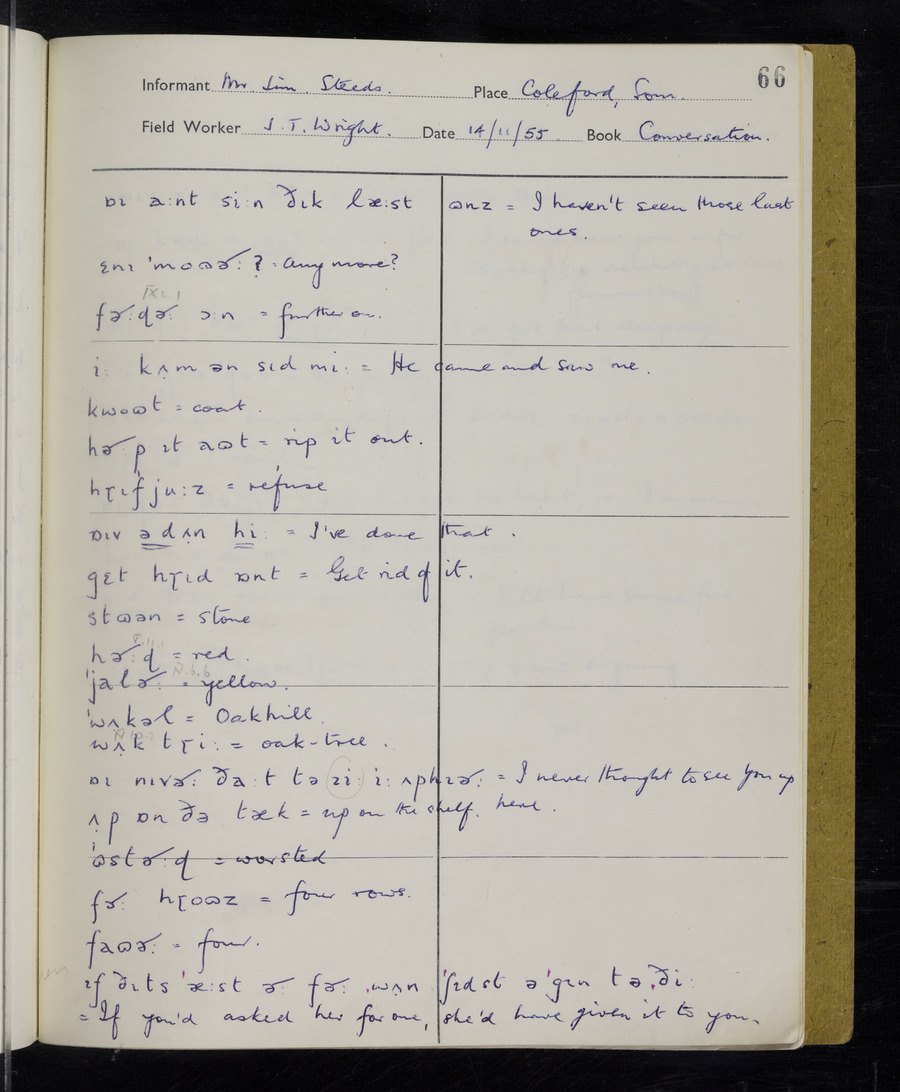 66
Informant Mr. Jim Steeds. Place Coleford, Som.
Field Worker J.T. Wright. Date 14/11/55 Book Conversation.
ɒɪ aːnt siːn ðɪk læːst ɷnz = I haven't seen those last
ones.
ɛnɪ ˈmoɷɚː? = any more?
IX.2.1
fɚːɖɚː ɔːn = further on.
iː kʌm ən sɪd miː = He came and saw me.
kwoɷt = coat.
hɚp ɪt aɷt = rip it out.
hɽɪfjuːz = refuse
ɒɪv ədʌn hiː = I've done that.
gɛt hɽɪd ɒnt = Get rid of it.
stɷən = stone
hɚːɖ = red.
ˈjalɚː = yellow.
ˈwʌkəl = Oakhill.
wʌk tɽiː = oak-tree.
ɒɪ nɪvɚː ðaːt tə ziː iː ʌphɪɚː = I never thought to see you up
here.
ʌp ɒn ðə tæk = up on the shelf.
ˈɷstɚːɖ = worsted
fɚː hɽoɷz = four rows.
faɷɚː = four.
ɪf ðɪts ˈæːst ɚː fɚː ˌwʌn ˈʃɪdst əˈgɪn tə ˌðiː
= If you'd asked her for one, she'd have given it to you.